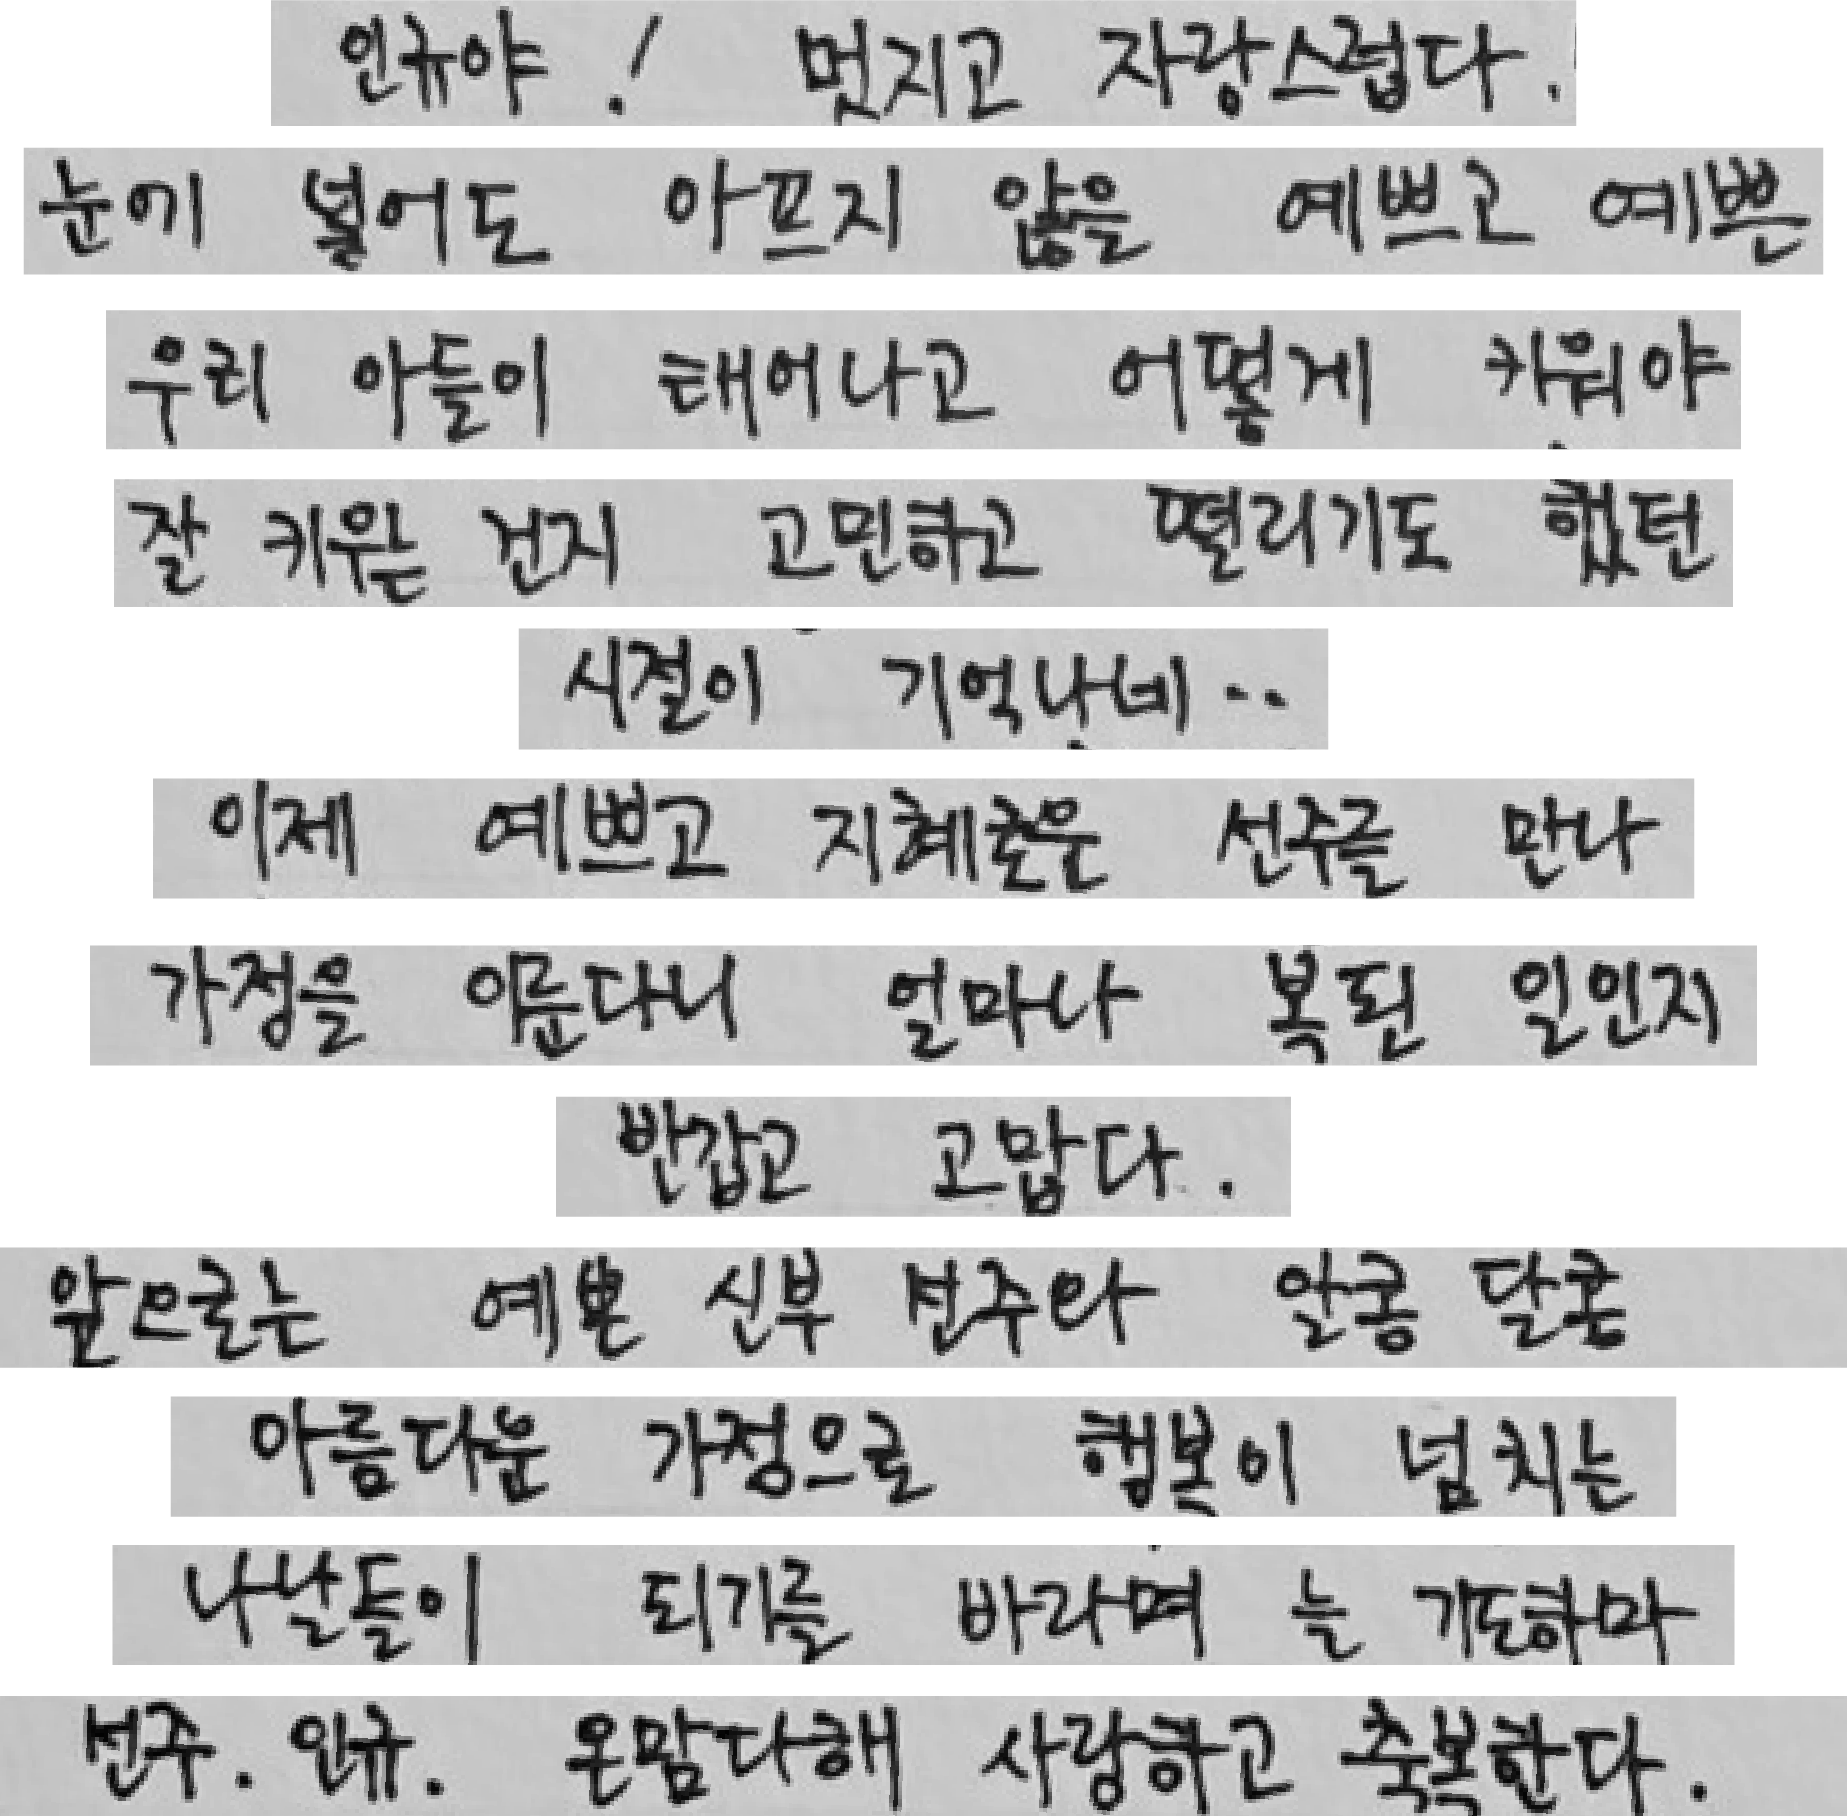 인규야! 멋지고 자랑스럽다.
눈에 넣어도 아프지 않을 예쁘고 예쁜
우리 아들이 태어나고 어떻게 키워야
잘 키우는 건지 고민하고 떨리기도 했던
시절이 기억나네..
이제 예쁘고 지혜로운 선주를 만나
가정을 이룬다니 얼마나 복된 일인지
반갑고 고맙다.
앞으로는 예쁜 신부 선주와 알콩 달콩
아름다운 가정으로 행복이 넘치는
나날들이 되기를 바라며 늘 기도하마
선주. 인규. 온맘다해 사랑하고 축복한다.